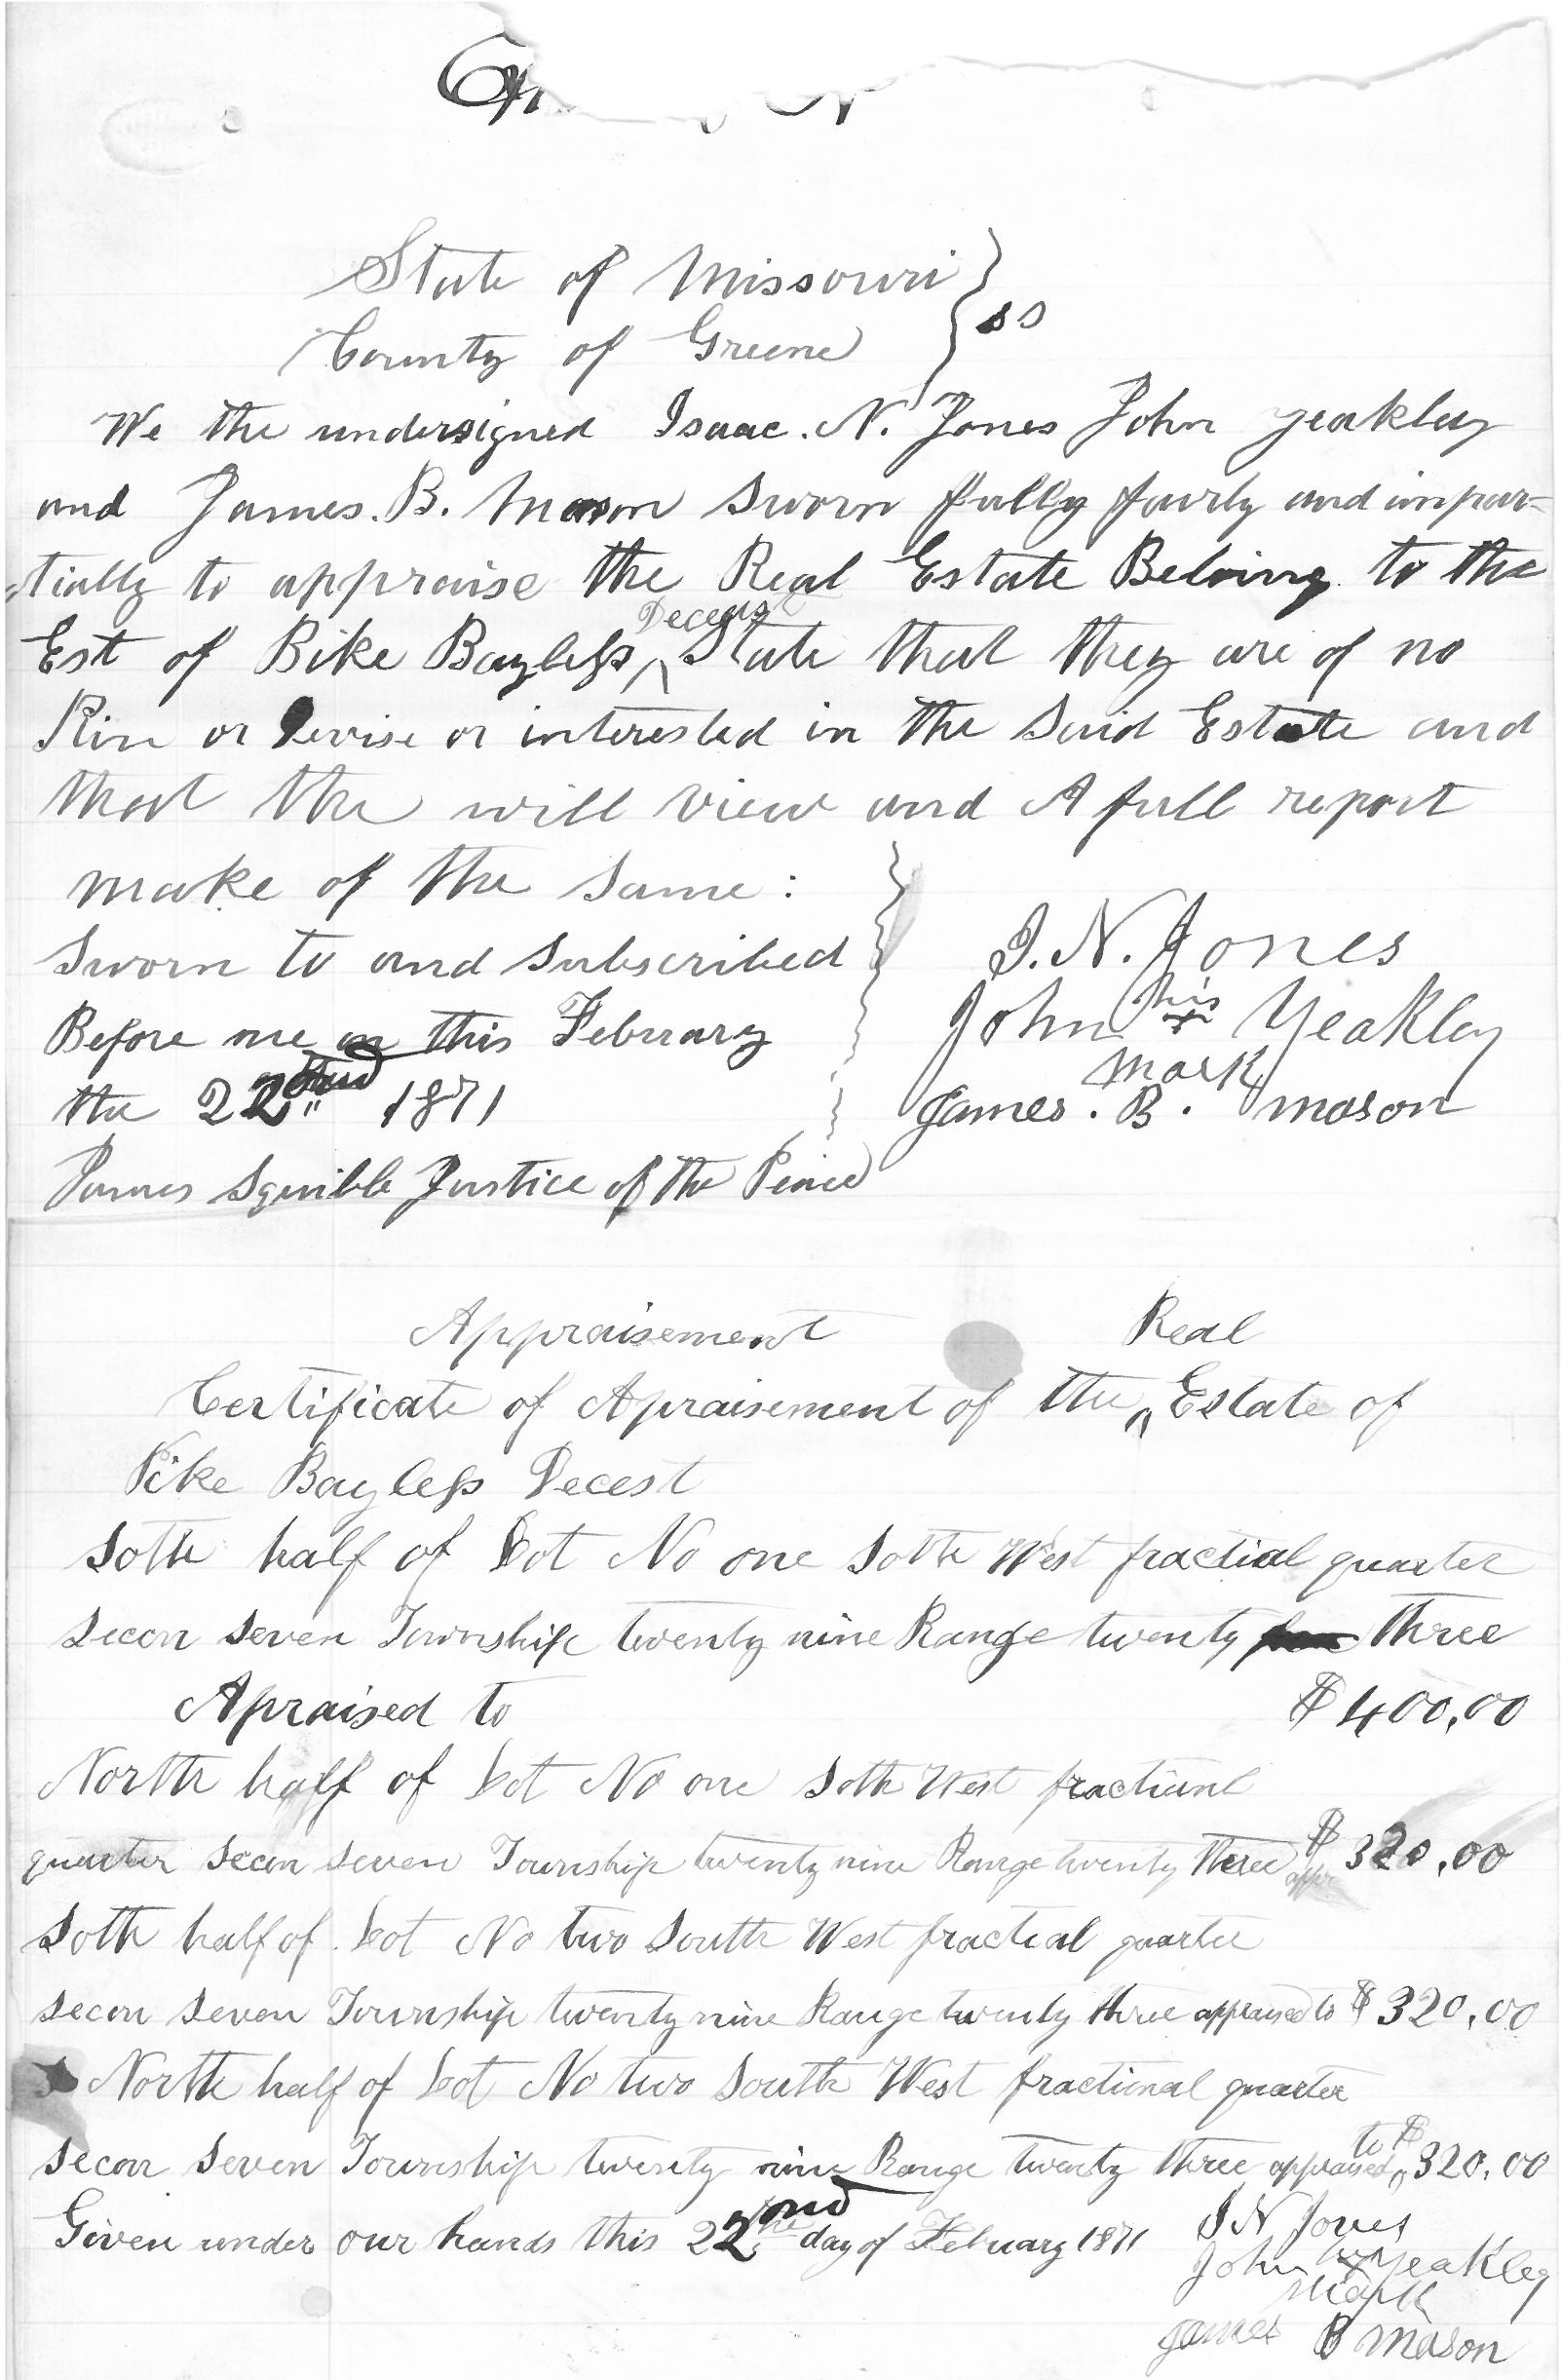 State of Missouri
County of Greene } ss
We the undersigned Isaac. N. Jones John Yeakley
and James. B. Mason Sworn fully fairly and impar-
-tially to appraise the Real Estate Beloing to the
Deceast
Est of Bike Bayless ^ State that they are of no
Kin or Devise or interested in the Said Estate and
that the will view and A full report
make of the Same :
Sworn to and Subscribed
Before me this Febuary
the 22nd 1871
James Squibb Justice of the Peace
I. N. Jones
his
John x Yeakley
mark
James . B . Mason
Appraisement Real
Certificate of Apraisement of the ^ Estate of
Pike Bayless Decest
Soth half of Lot No one Soth West fractial quarter
Secon Seven Township twenty nine Range twenty three
Apraised to $400.00
North half of Lot No one Soth West fractiunl
quarter Secon Seven Township twenty nine Range twenty three $ 320.00
Soth half of Lot No two South West fractial quarter
Secon Seven Township twenty nine Range twenty three appraised to $ 320.00
North half of Lot No two South West fractional quarter
to $
Secon Seven Township twenty nine Range twenty three appraised ^ 320.00
Given under our hands this 22nd day of Febuary 1871
I N Jones
his
John x Yeakley
Mark
James B Mason